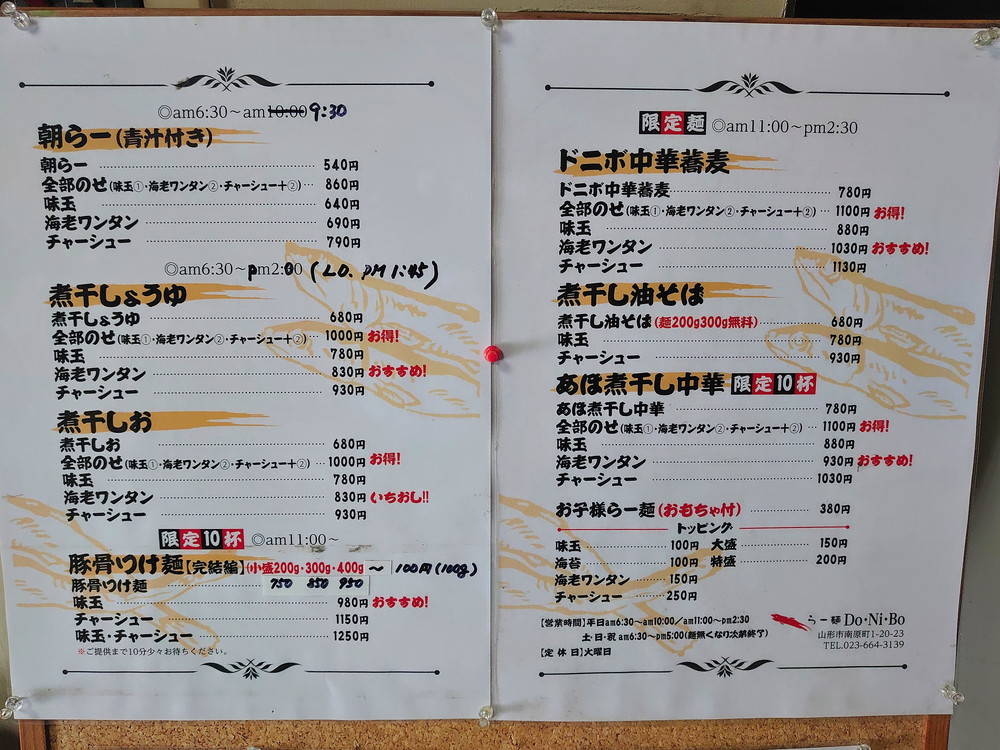 ◎am6:30~am10:00 9:30
朝らー(青汁付き)
朝らー 540円
全部のせ(味玉①・海老ワンタン②・チャーシュー+②) 860円
味玉 640円
海老ワンタン 690円
チャーシュー 790円
◎am6:30~pm2:00 (L.O. PM 1:45)
煮干しょうゆ
煮干しょうゆ 680円
全部のせ(味玉①・海老ワンタン②・チャーシュー+②) 1000円 お得!
味玉 780円
海老ワンタン 830円 おすすめ!
チャーシュー 930円
煮干しお
煮干しお 680円
全部のせ(味玉①・海老ワンタン②・チャーシュー+②) 1000円 お得!
味玉 780円
海老ワンタン 830円 いちおし!!
チャーシュー 930円
限定10杯 ◎am11:00~
豚骨つけ麺【完結編】(小盛200g・300g・400g ~ 100円(100g)
豚骨つけ麺 750 850 950
味玉 980円 おすすめ!
チャーシュー 1150円
味玉・チャーシュー 1250円
※ご提供まで10分少々お待ちください。
限定麺 ◎am11:00~pm2:30
ドニボ中華蕎麦
ドニボ中華蕎麦 780円
全部のせ(味玉①・海老ワンタン②・チャーシュー+②) 1100円 お得!
味玉 880円
海老ワンタン 1030円 おすすめ!
チャーシュー 1130円
煮干し油そば
煮干し油そば(麺200g300g無料) 680円
味玉 780円
チャーシュー 930円
あほ煮干し中華 限定10杯
あほ煮干し中華 780円
全部のせ(味玉①・海老ワンタン②・チャーシュー+②) 1100円 お得!
味玉 880円
海老ワンタン 930円 おすすめ!
チャーシュー 1030円
お子様らー麺(おもちゃ付) 380円
トッピング
味玉 100円 大盛 150円
海苔 100円 特盛 200円
海老ワンタン 150円
チャーシュー 250円
【営業時間】平日am6:30~am10:00/am11:00~pm2:30
土・日・祝 am6:30~pm5:00(麺無くなり次第終了)
【定休日】火曜日
らー麺 Do・Ni・Bo
山形市南原町1-20-23
TEL.023-664-3139